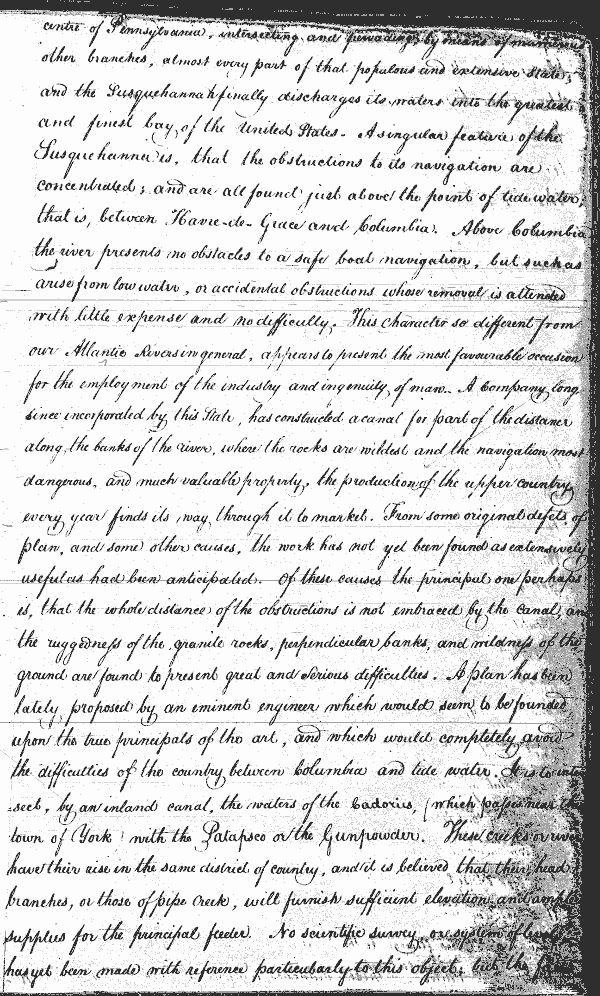 centre of Pennsylvania, intersecting and pervading, by means of numerous
other branches, almost every part of that populous and extensive State;
and the Susquehannah finally discharges its waters into the greatest
and finest bay, of the United States. A singular feature of the
Susquehanna is, that the obstructions to its navigation are
concentrated; and are all found just above the point of tide water;
that is, between Havre-de-Grace and Columbia. Above Columbia
the river presents no obstacles to a safe boat navigation, but such as
arise from low water, or accidental obstructions whose removal is attended
with little expense and no difficulty. This character so different from
our Atlantic Rivers in general, appears to present the most favourable occasion
for the employment of the industry and ingenuity of man. A Company long
since incorporated by this State, has constructed a canal for part of the distance
along the banks of the river, where the rocks are wildest and the navigation most
dangerous, and much valuable property, the production of the upper country
every year finds its way through it to market. From some original defects of
plan, and some other causes, the work has not yet been found as extensively
useful as had been anticipated. Of these causes the principal one perhaps
is, that the whole distance of the obstructions is not embraced by the canal, and
the ruggedness of the granite rocks, perpendicular banks, and wildness of the
ground are found to present great and serious difficulties. A plan has been
lately proposed by an eminent engineer which would seem to be founded
upon the true principals of the art, and which would completely avoid
the difficulties of the country between Columbia and tide water. It is to inter
-sect, by an inland canal, the waters of the Cadorius, (which passes near the
town of York) with the Patapsco or the Gunpowder. These creeks or rivers
have their rise in the same district of country, and it is believed that their head
branches, or those of pipe Creek, will furnish sufficient elevation and ample
supplies for the principal feeder. No scientific survey, or system of levels
has yet been made with reference particularly to this object; but the